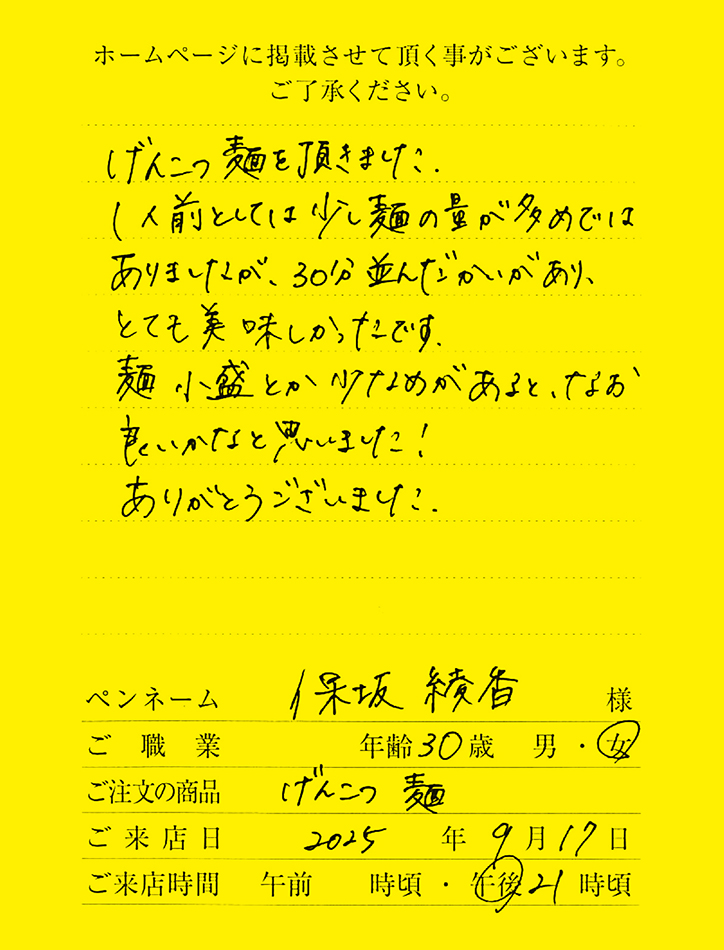 ホームページに掲載させて頂く事がございます。
ご了承ください。
げんこつ麺を頂きました.
1人前としては少し麺の量が多めでは
ありましたが、30分並んだかいがあり、
とても美味しかったです.
麺 小盛とか少なめがあると、なお
良いかなと思いました!
ありがとうございました.
ペンネーム 保坂 綾香 様
ご職業 年齢 30 歳 男・女
ご注文の商品 げんこつ 麺
ご来店日 2025 年 9 月 17 日
ご来店時間 午前 時頃・午後 21 時頃